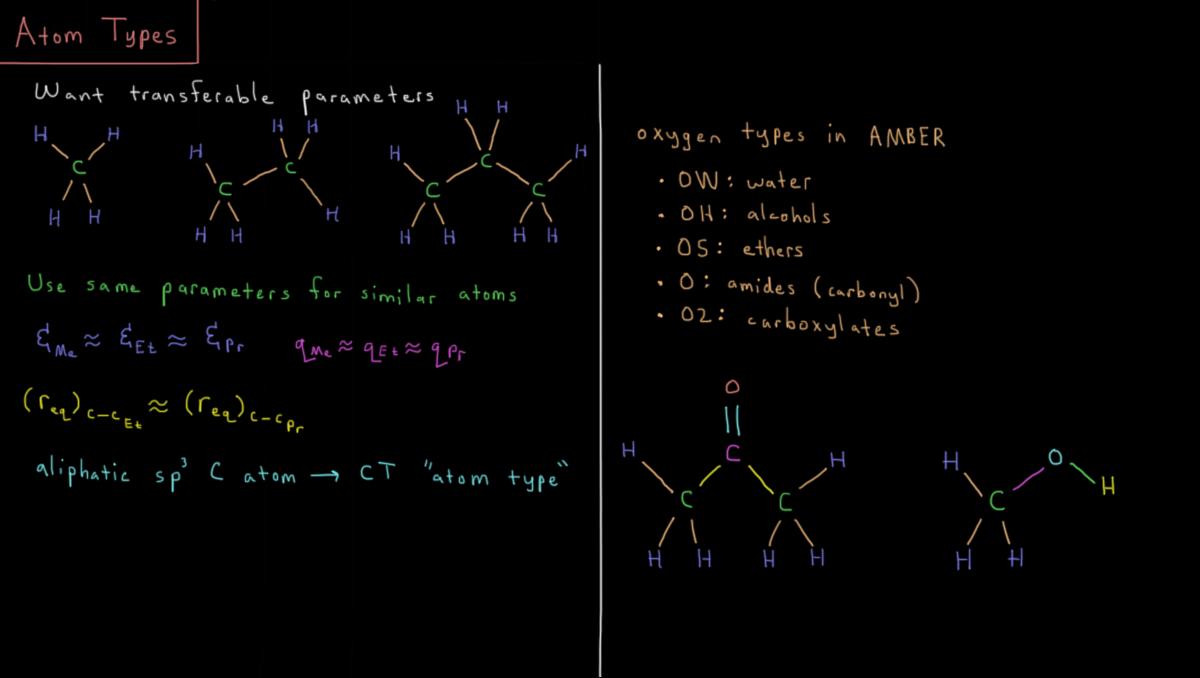 Atom Types
Want transferable parameters
H H
C
H H
H H
H C
C H
H H
H H
H C H
C C
H H H H
Use same parameters for similar atoms
ξMe ≈ ξEt ≈ ξPr qMe ≈ qEt ≈ qPr
(req)C-CEt ≈ (req)C-CPr
aliphatic sp³ C atom → CT "atom type"
oxygen types in AMBER
• OW: water
• OH: alcohols
• OS: ethers
• O: amides (carbonyl)
• O2: carboxylates
O
H C H
C C
H H H H
H O
C H
H H